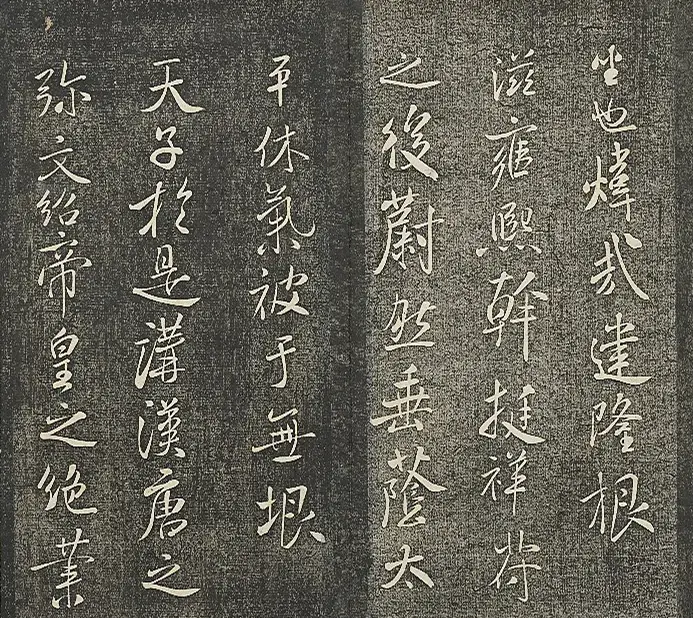 坐也煒哉建隆根
滋雍熙幹挺祥符
之後蔚然垂蔭太
平休氣被于無垠
天子於是講漢唐之
弥文紹帝皇之絕業